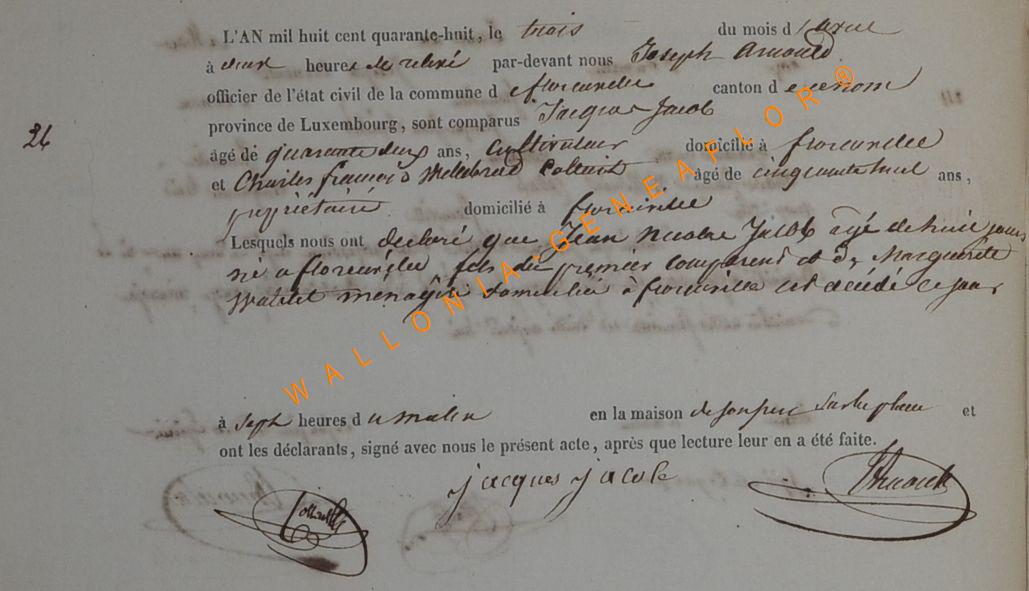 L'AN mil huit cent quarante-huit, le trois du mois d'avril
à deux heures de relevé par-devant nous Joseph Arnould
officier de l'état civil de la commune d e florenville canton d
province de Luxembourg, sont comparus Jacques Jacob
26
âgé de quarante deux ans, cultivateur domicilié à florenville
et Charles françois Collard âgé de cinquante ans,
propriétaire domicilié à florenville
Lesquels nous ont declaré que Jean Nicolas Jacob agé de huit jours
né a florenville fils du premier comparant et de Marguerite
Watelet menagère domiciliée à florenville est décédé ce jour
à sept heures d u matin en la maison de son pere sur la place et
ont les déclarants, signé avec nous le présent acte, après que lecture leur en a été faite.
jacques jacob
JArnould
WALLONIA-GENEAFLOR®